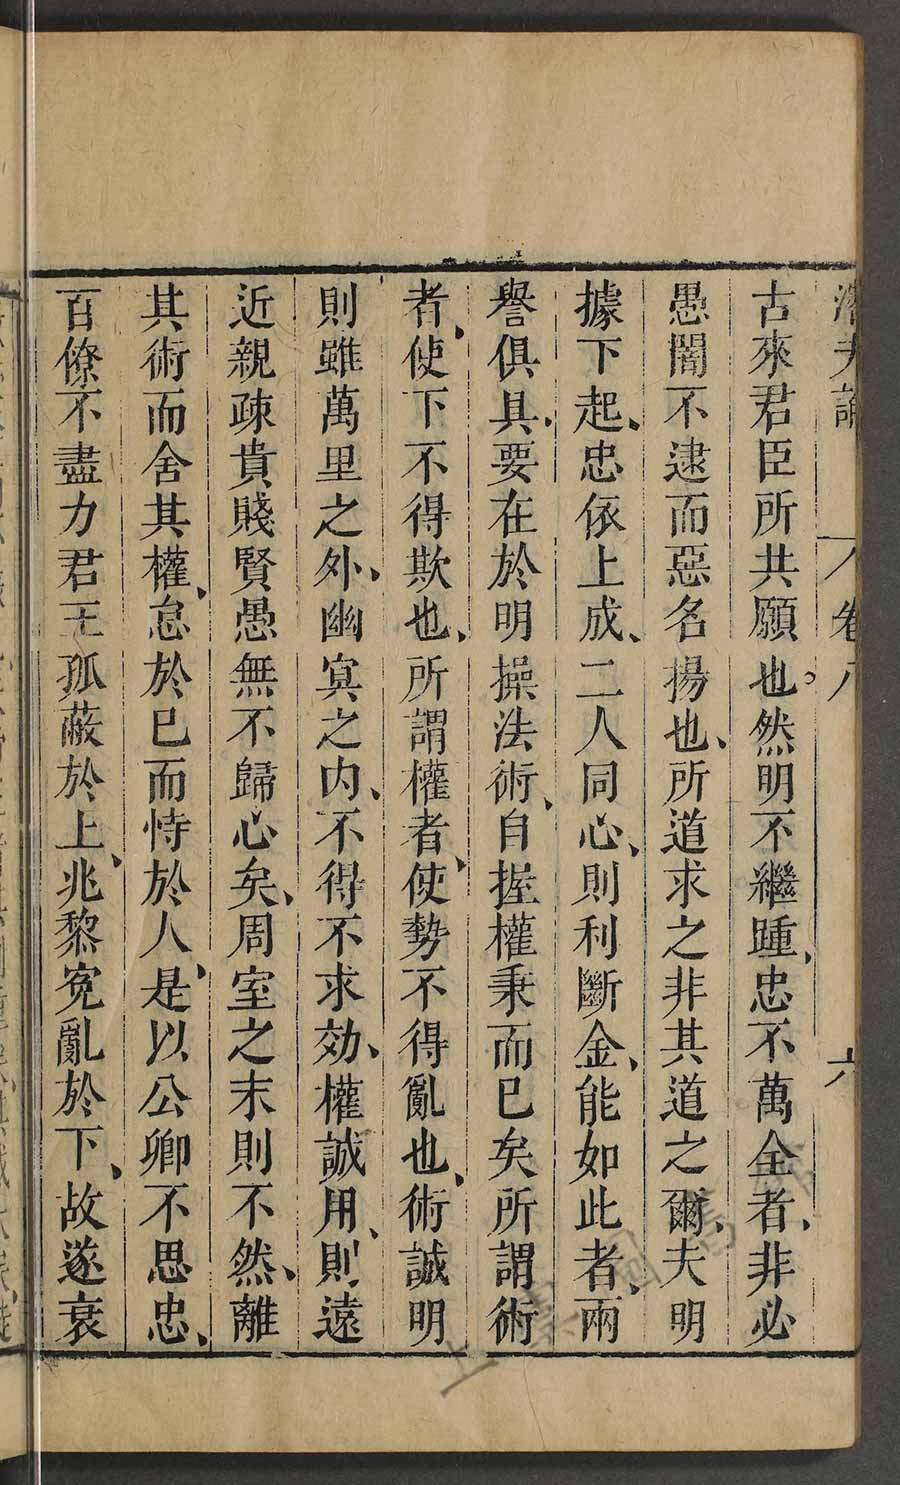 潛夫論 卷八 六
古來君臣所共願也。然明不繼踵、忠不萬全者、非必
愚闇不逮而惡名揚也、所道求之非其道之爾、夫明
據下起、忠依上成、二人同心、則利斷金、能如此者、兩
譽俱具、要在於明操法術、自握權秉而巳矣所謂術
者、使下不得欺也、所謂權者、使勢不得亂也、術誠明
則雖萬里之外、幽冥之内、不得不求効、權誠用、則遠
近親疎貴賤賢愚無不歸心矣、周室之末則不然、離
其術而舍其權、怠於巳而恃於人、是以公卿不思忠、
百僚不盡力君王孤蔽於上、兆黎寃亂於下、故遂衰